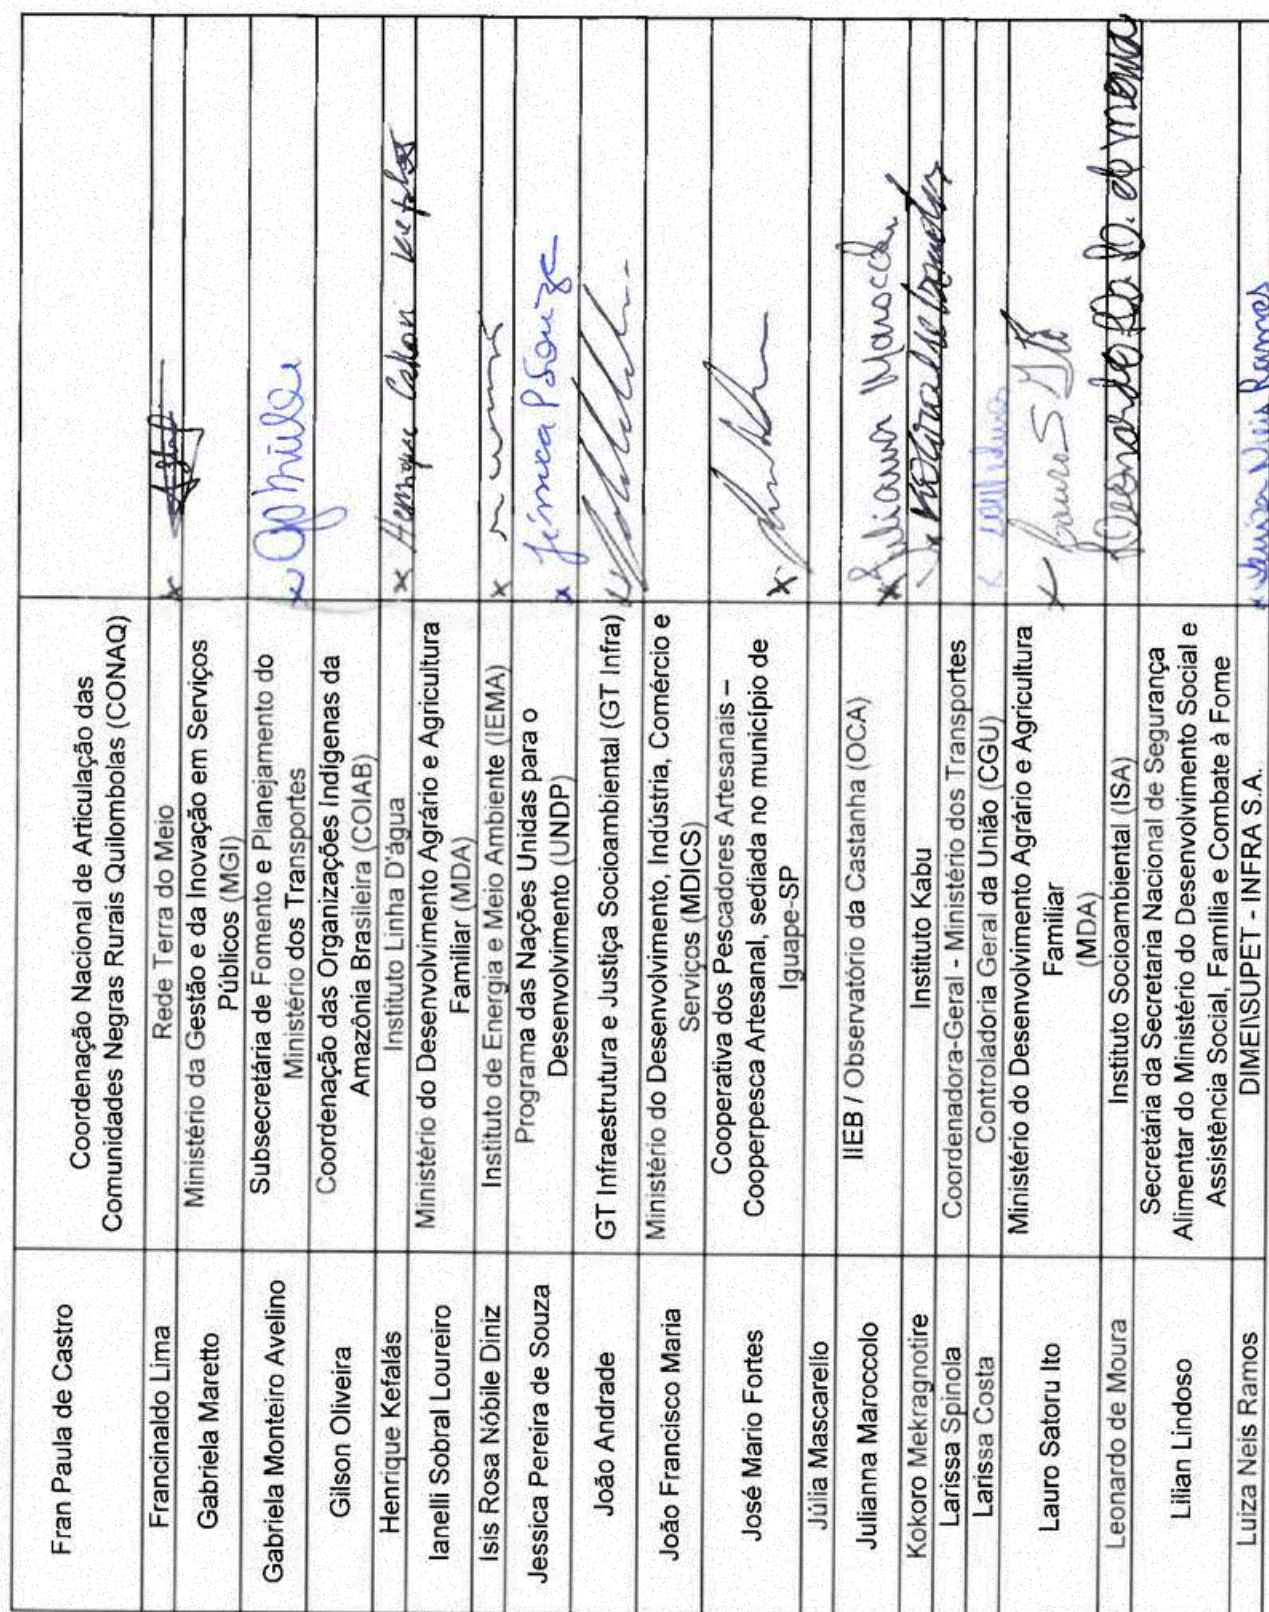 Fran Paula de Castro
Coordenação Nacional de Articulação das
Comunidades Negras Rurais Quilombolas (CONAQ)
Francinaldo Lima
Rede Terra do Meio
x
Gabriela Maretto
Ministério da Gestão e da Inovação em Serviços
Públicos (MGI)
Gabriela Monteiro Avelino
Subsecretária de Fomento e Planejamento do
Ministério dos Transportes
x
Gilson Oliveira
Coordenação das Organizações Indígenas da
Amazônia Brasileira (COIAB)
Henrique Kefalás
Instituto Linha D'água
x Henrique Callori Kefalás
Ianelli Sobral Loureiro
Ministério do Desenvolvimento Agrário e Agricultura
Familiar (MDA)
Isis Rosa Nóbile Diniz
Instituto de Energia e Meio Ambiente (IEMA)
x
Jessica Pereira de Souza
Programa das Nações Unidas para o
Desenvolvimento (UNDP)
x Jéssica P Souza
João Andrade
GT Infraestrutura e Justiça Socioambiental (GT Infra)
x
João Francisco Maria
Ministério do Desenvolvimento, Indústria, Comércio e
Serviços (MDICS)
José Mario Fortes
Cooperativa dos Pescadores Artesanais –
Cooperpesca Artesanal, sediada no município de
Iguape-SP
x
Júlia Mascarello
Julianna Maroccolo
IIEB / Observatório da Castanha (OCA)
x Julianna Maroccolo
Kokoro Mekragnotire
Instituto Kabu
x
Larissa Spinola
Coordenadora-Geral - Ministério dos Transportes
Larissa Costa
Controladoria Geral da União (CGU)
x
Lauro Satoru Ito
Ministério do Desenvolvimento Agrário e Agricultura
Familiar
(MDA)
x Lauro S Ito
Leonardo de Moura
Instituto Socioambiental (ISA)
Leonardo de Moura
Lilian Lindoso
Secretária da Secretaria Nacional de Segurança
Alimentar do Ministério do Desenvolvimento Social e
Assistência Social, Família e Combate à Fome
Luiza Neis Ramos
DIMEI\SUPET - INFRA S.A.
x Luiza Neis Ramos